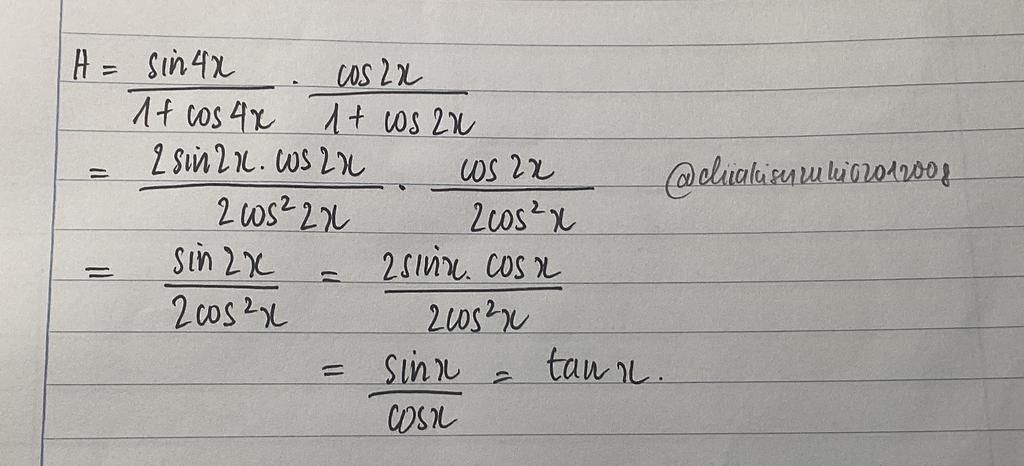 H = sin4x / 1 + cos 4x . cos 2x / 1 + cos 2x
= 2 sin 2x. cos 2x / 2 cos² 2x . cos 2x / 2cos² x
= sin 2x / 2 cos² x = 2 sin x. cos x / 2 cos² x
= sin x / cos x = tan x.